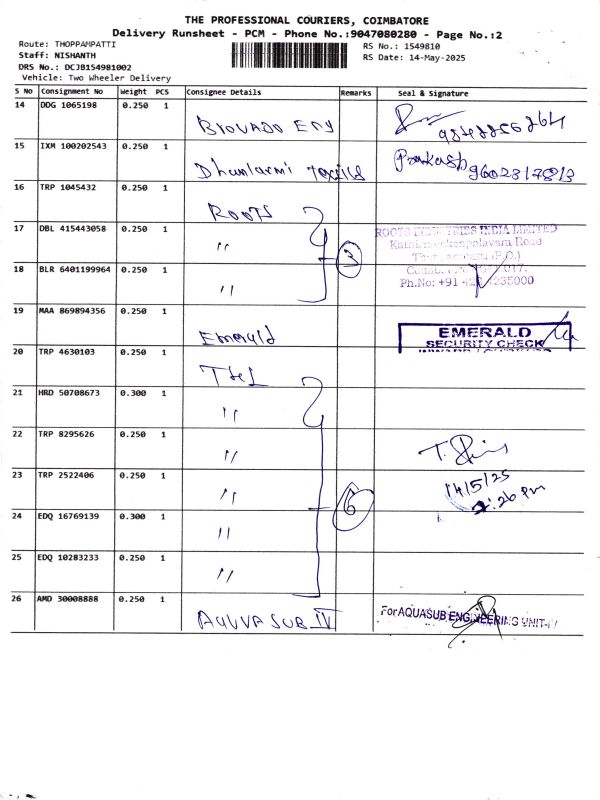 THE PROFESSIONAL COURIERS, COIMBATORE
Delivery Runsheet - PCM - Phone No.:9047080280 - Page No.:2
Route: THOPPAMPATTI
RS No.: 1549810
Staff: NISHANTH
RS Date: 14-May-2025
DRS No.: DCJB154981002
Vehicle: Two Wheeler Delivery
S No Consignment No Weight PCS Consignee Details Remarks Seal & Signature
14 DDG 1065198 0.250 1
15 IXM 100202543 0.250 1 Prakash 9602817813
16 TRP 1045432 0.250 1 ROOTS
17 DBL 415443058 0.250 1 "
3
ROOTS INDUSTRIES INDIA LIMITED
Road
18 BLR 6401199964 0.250 1 "
Ph.No: +91
19 MAA 869894356 0.250 1 Emerald
EMERALD
SECURITY CHECK
20 TRP 4630103 0.250 1
21 HRD 50708673 0.300 1 "
22 TRP 8295626 0.250 1 "
23 TRP 2522406 0.250 1 "
14/5/25
6
24 EDQ 16769139 0.300 1 "
25 EDQ 10283233 0.250 1 "
26 AMD 30008888 0.250 1 AQUVA SUB IV
For AQUASUB ENGINEERING UNIT-IV